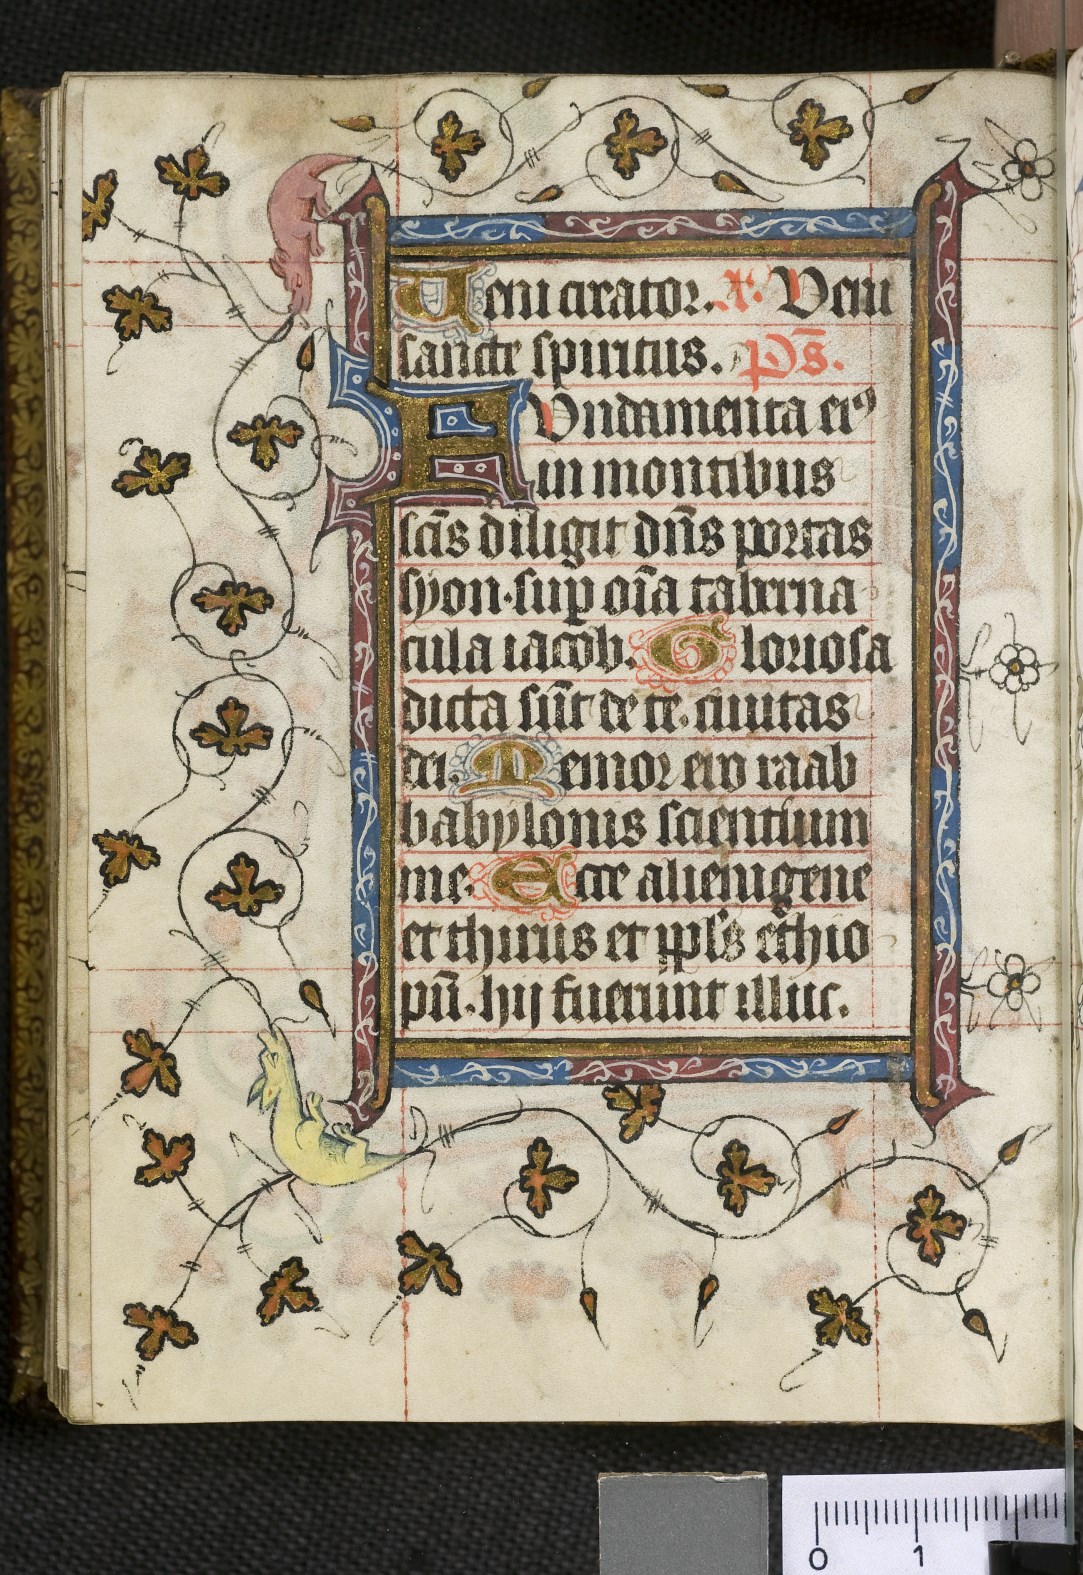 Veni creator. A᷎. Veni
sancte spiritus. Ps̄.
FVndamenta ei⁹
in montibus
sc̄is diligit dn̄s portas
syon. sup̱ om̄a taberna
cula iacob. Gloriosa
dicta sūt de te. ciuitas
dei. Memor ero raab
babylonis scientium
me. Ecce alienigene
et thirus et ppl̄s ethio
pū. hij fuerunt illuc.
0 1